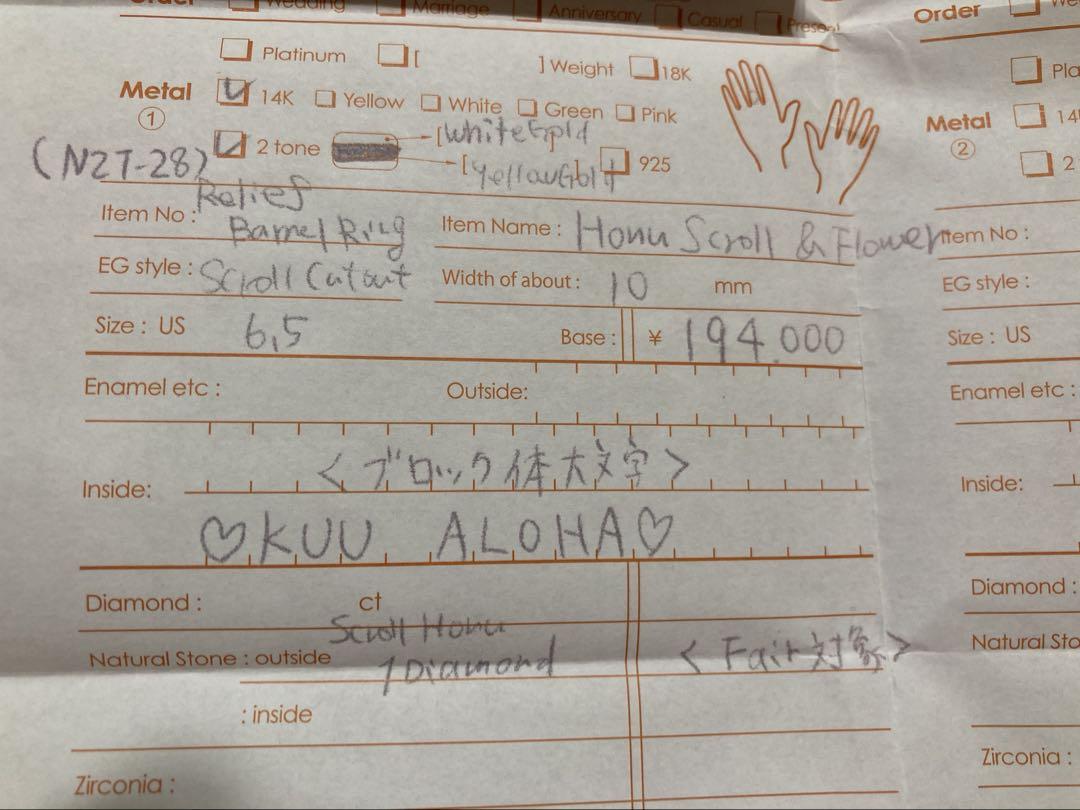 Order Wedding Marriage Anniversary Casual Present
Platinum [ ] Weight 18K
Metal ① 14K Yellow White Green Pink
2 tone [WhiteGold
[YellowGold 925
(N2T-28)
Item No : Relief Barrel Ring
Item Name : Honu Scroll & Flower
EG style : Scroll Cut out
Width of about : 10 mm
Size : US 6,5
Base : ¥ 194.000
Enamel etc :
Outside:
<ブロック体大文字>
Inside:
♡KUU ALOHA♡
Diamond : ct
Scroll Honu
Natural Stone : outside 1 Diamond
<Fair対象>
: inside
Zirconia :
Order
Metal ② 14
2
Item No :
EG style :
Size : US
Enamel etc :
Inside:
Diamond :
Natural Sto
Zirconia :